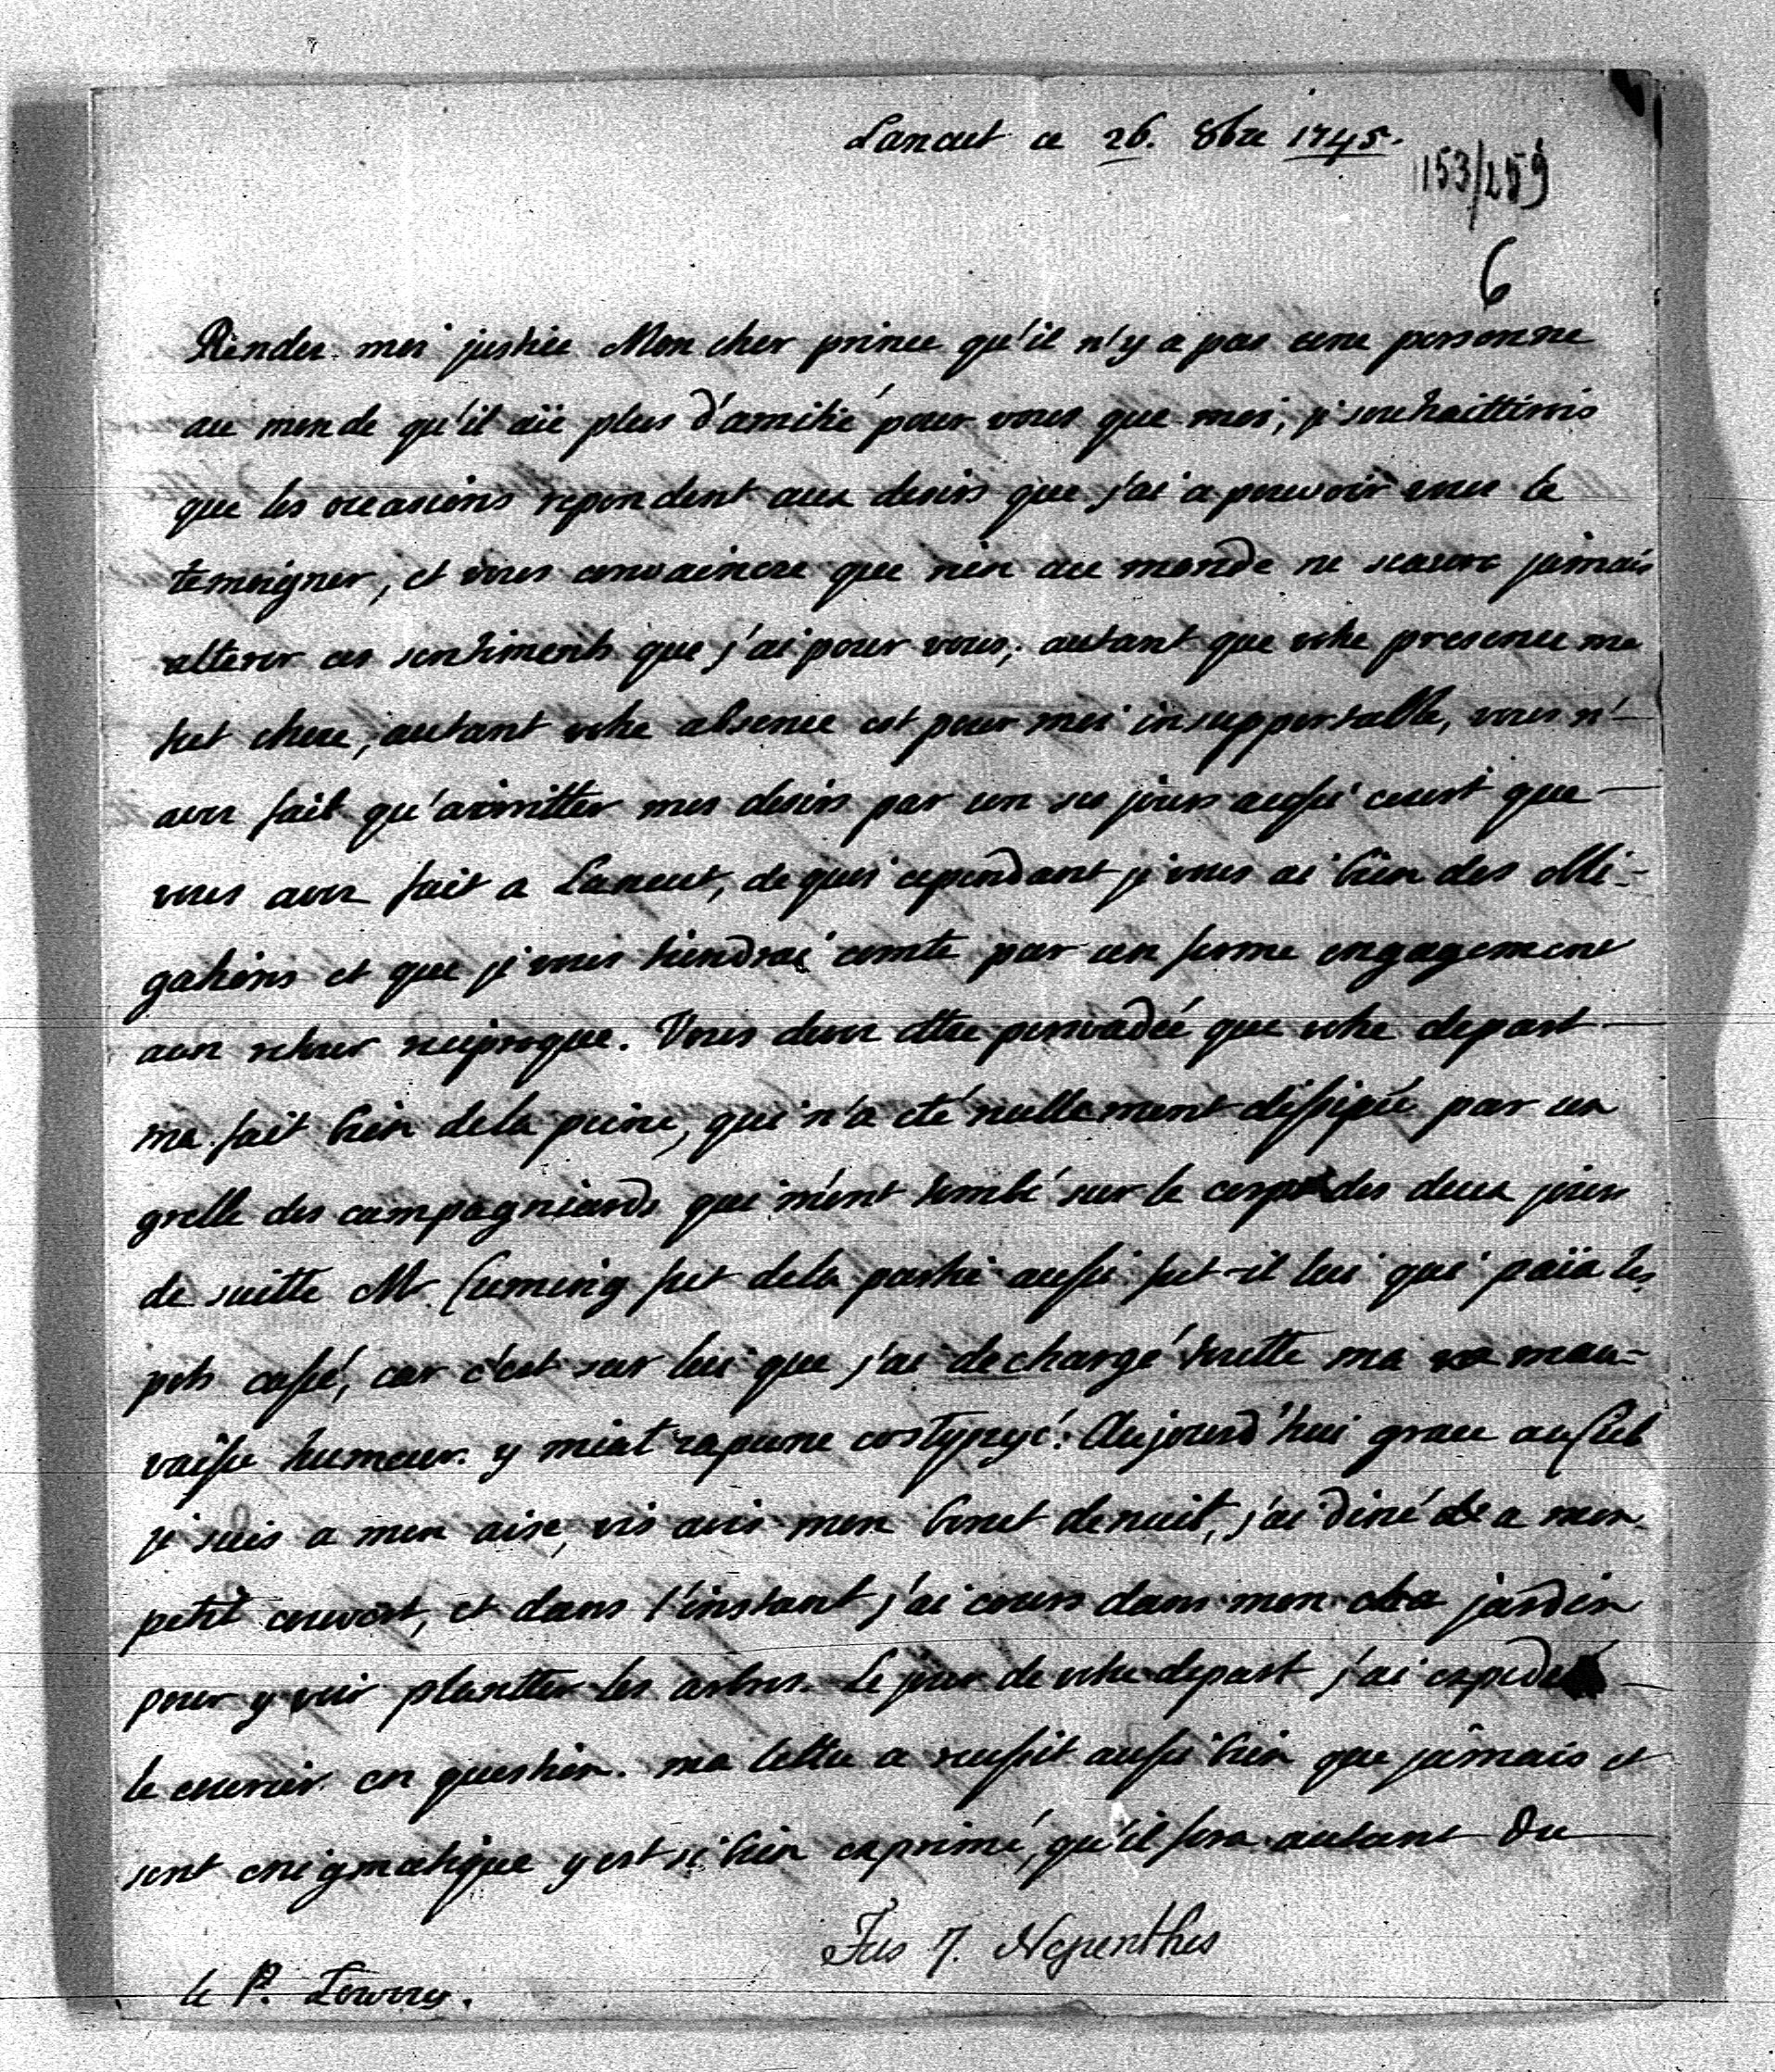 Lancut ce 26. 8bre 1745.
153/259
6
Rendez moi justice Mon cher prince qu'il n'y a pas une personne
au monde qu'il aïe plus d'amitié pour vous que moi, je souhaitterois
que les occasions repondent aux desirs que j'ai a pouvoir vous le
temoigner, et vous convaincre que rien au monde ne scaura jamais
alterer ces sentiments que j'ai pour vous; autant que votre presence me
fut chere, autant votre absence est pour moi insupportable, vous n'
avez fait qu'arritter mes desirs par un sejours aussi court que
vous avez fait a Lancut, de quoi cependant je vous ai bien des obli-
gations et que je vous tiendrai comte par un ferme engagement
aun retour reciproque. Vous devez ettre persuadée que votre depart
ma fait bien de la peine, qui n'a eté nullement dissipée par un
grelle des campagniards qui m'ont tombé sur le corps des deux jours
de suitte Mr. Cuming fut de la partie aussi fut-il lui qui païa les
pots cassé, car c'est sur lui que j'ai dechargé toutte ma mau-
vaisse humeur. y miał zapiene Aujourd'hui grace au Ciel
je suis a mon aise, vis avis mon bonet de nuit, j'ai diné a mon
petit couvert, et dans l'instant j'ai cours dans mon jardin
pour y voir plantter les arbres. Le jour de votre depart j'ai expedié
le courier en question. ma lettre a reussit aussi bien que jâmais et
sont enigmatique y est si bien exprimé, qu'il sera autant Du
Fus 7. Nepenthes
le P.